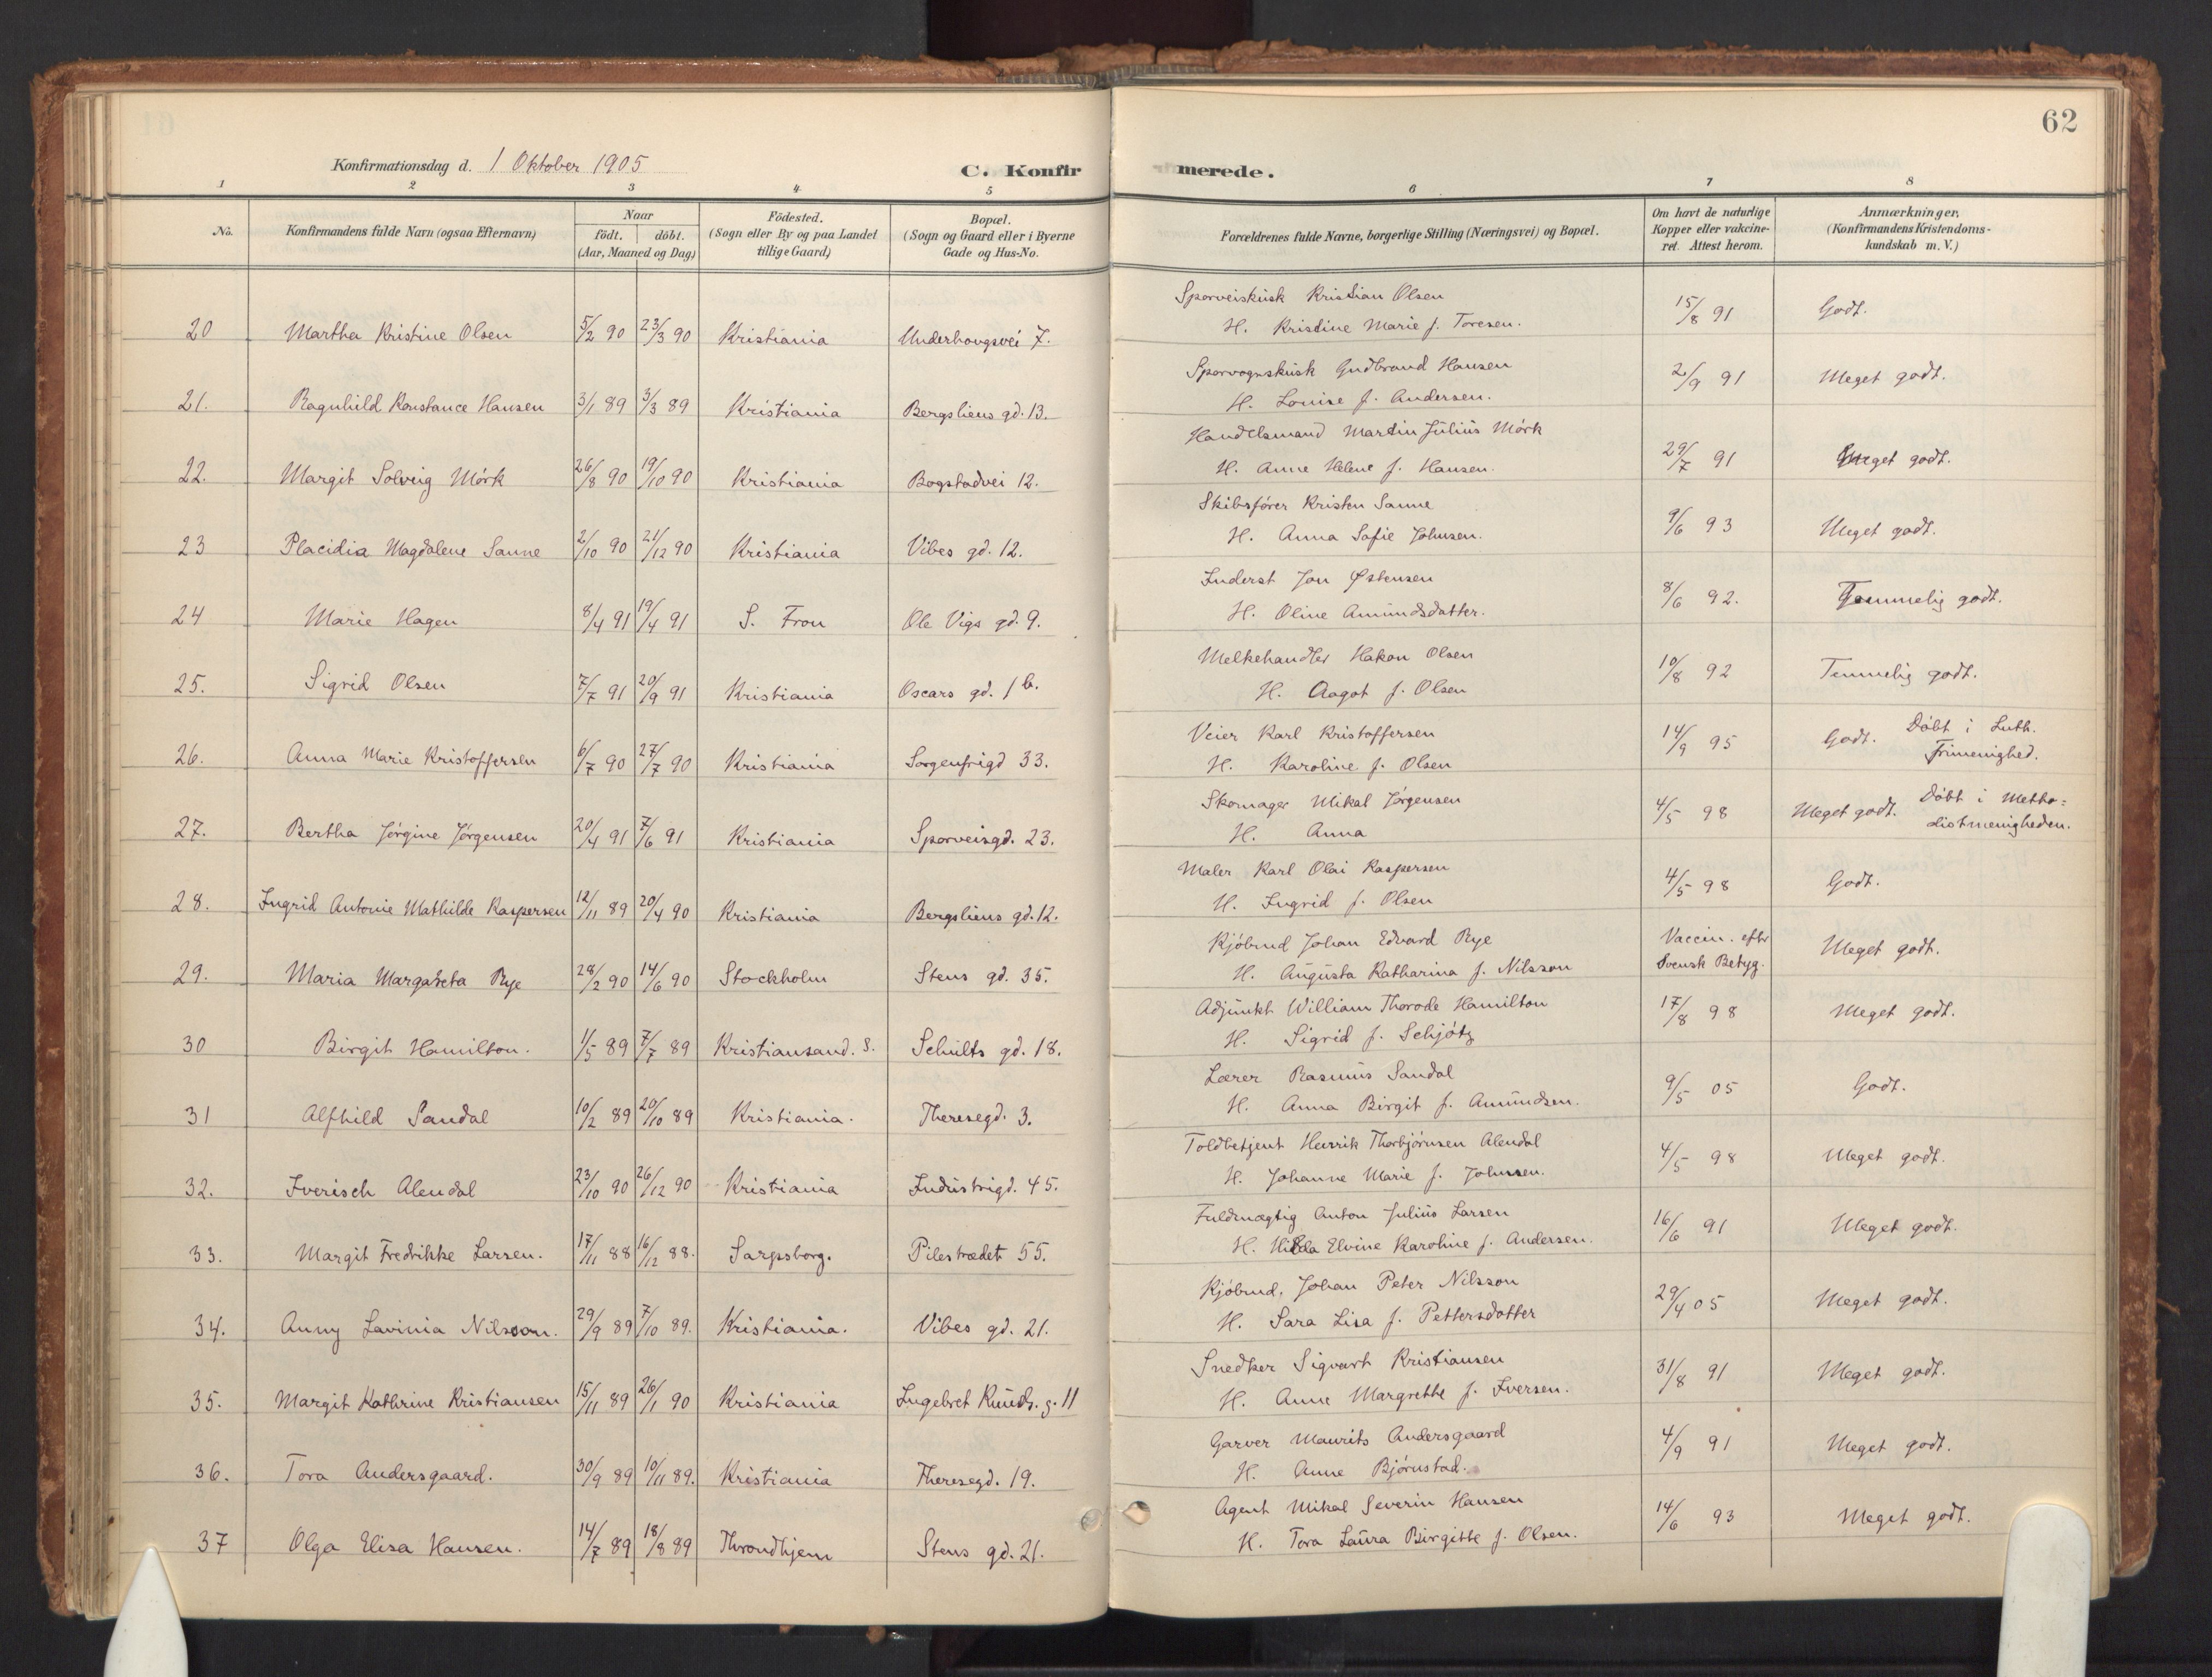 62
Konfirmationsdag d. 1 Oktober 1905
C. Konfirmerede.
1 2 3 4 5 6 7 8
No. Konfirmandens fulde Navn (ogsaa Efternavn) Naar födt. döbt. (Aar, Maaned og Dag) Födested. (Sogn eller By og paa Landet tillige Gaard) Bopæl. (Sogn og Gaard eller i Byerne Gade og Hus-No. Forældrenes fulde Navne, borgerlige Stilling (Næringsvei) og Bopæl. Om havt de naturlige Kopper eller vakcineret. Attest herom. Anmærkninger. (Konfirmandens Kristendomskundskab m. V.)
20 Martha Kristine Olsen 5/2 90 23/3 90 Kristiania Underhaugsvei 7. Sporveiskusk Kristian Olsen 15/8 91 Godt.
H. Kristine Marie f. Toresen.
21. Ragnhild Konstance Hansen 3/1 89 3/3 89 Kristiania Bergsliens gd. 13. Sporvognskusk Gudbrand Hansen 2/9 91 Meget godt.
H. Louise f. Andersen.
22. Margit Solveig Mörk 26/8 90 19/10 90 Kristiania Bogstadvei 12. Handelsmand Martin Julius Mörk 29/7 91 Meget godt.
H. Anne Helene f. Hansen.
23 Placidia Magdalene Sanne 2/10 90 21/12 90 Kristiania Vibes gd. 12. Skibsförer Kristen Sanne 9/6 93 Meget godt.
H. Anna Sofie Johnsen.
24 Marie Hagen 8/4 91 19/4 91 S. Fron Ole Vigs gd. 9. Inderst Jon Østensen 8/6 92. Temmelig godt.
H. Oline Amundsdatter.
25. Sigrid Olsen 7/7 91 20/9 91 Kristiania Oscars gd. 1 b. Melkehandler Hakon Olsen 10/8 92 Temmelig godt.
H. Aagot f. Olsen
26. Anna Marie Kristoffersen 6/7 90 27/7 90 Kristiania Sorgenfrigd 33. Veier Karl Kristoffersen 14/9 95 Godt. Döbt i Luth. Frimenighed.
H. Karoline f. Olsen
27. Bertha Jörgine Jörgensen 20/4 91 7/6 91 Kristiania Sporveisgd. 23. Skomager Mikal Jörgensen 4/5 98 Meget godt. Döbt i Metho=distmenigheden.
H. Anna
28. Ingrid Antonie Mathilde Kaspersen 12/11 89 20/4 90 Kristiania Bergsliens gd. 12. Maler Karl Olai Kaspersen 4/5 98 Godt.
H. Ingrid f. Olsen
29. Maria Margareta Rye 28/2 90 14/6 90 Stockholm Stens gd. 35. Kjöbmd Johan Edvard Rye Vaccin. efter Svensk Betyg. Meget godt.
H. Augusta Katharina f. Nilsson
30 Birgit Hamilton. 1/5 89 7/7 89 Kristiansand. S. Schults gd. 18. Adjunkt William Thorode Hamilton 17/8 98 Meget godt.
H. Sigrid f. Schjötz
31 Alfhild Sandal 10/2 89 20/10 89 Kristiania. Theresegd. 3. Lærer Rasmus Sandal 9/5 05 Godt.
H. Anna Birgit f. Amundsen.
32. Iverisch Alendal 23/10 90 26/12 90 Kristiania Industrigd. 45. Toldbetjent Henrik Thorbjörnsen Alendal 4/5 98 Meget godt.
H. Johanne Marie f. Johnsen.
33. Margit Fredrikke Larsen. 17/11 88 16/12 88. Sarpsborg. Pilestrædet 55. Fuldmægtig Anton Julius Larsen 16/6 91 Meget godt.
H. Hilda Elvine Karoline f. Andersen.
34. Anny Lavinia Nilsson. 29/9 89 7/10 89. Kristiania. Vibes gd. 21. Kjöbmd. Johan Peter Nilsson 29/4 05 Meget godt.
H. Sara Lisa f. Pettersdotter
35. Margit Kathrine Kristiansen 15/11 89 26/1 90 Kristiania Ingebret Knuds. g. 11 Snedker Sigvart Kristiansen 31/8 91 Meget godt.
H. Anne Margrethe f. Iversen.
36. Tora Andersgaard. 30/9 89 10/11 89. Kristiania Theresegd. 19. Garver Maurits Andersgaard 4/9 91 Meget godt.
H. Anne Björnstad.
37 Olga Elisa Hansen. 14/7 89 18/8 89 Throndhjem Stens gd. 21. Agent Mikal Severin Hansen 14/6 93 Meget godt.
H. Tora Laura Birgitte f. Olsen.